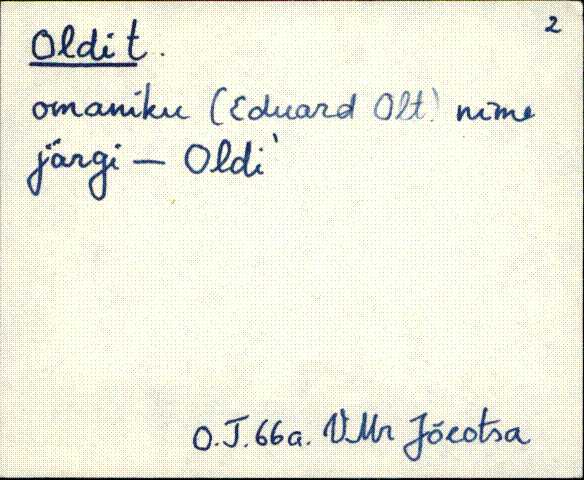 2
Oldi t.
omaniku (Eduard Olt) nime
järgi — Oldi'
O.J. 66a. VMr Jõeotsa